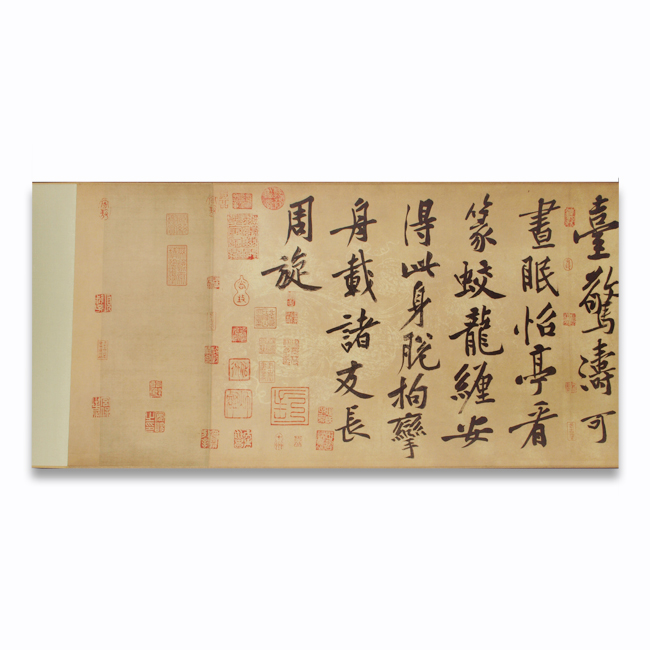 臺驚濤可
晝眠怡亭看
篆蛟龍纏安
得此身脫拘攣
舟載諸友長
周旋